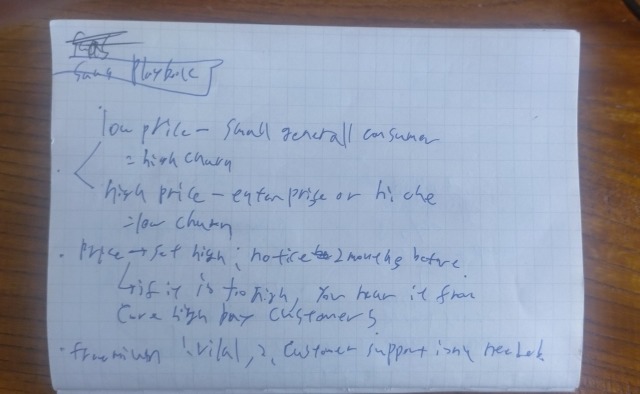 SaaS Playbook
low price - small generall consumer
= high churn
high price - enterprise or niche
= low churn
Price → set high; notice 2 months before
if it is too high, you hear it from
high customers
freemium 1. viral, 2. customer support isnt needed